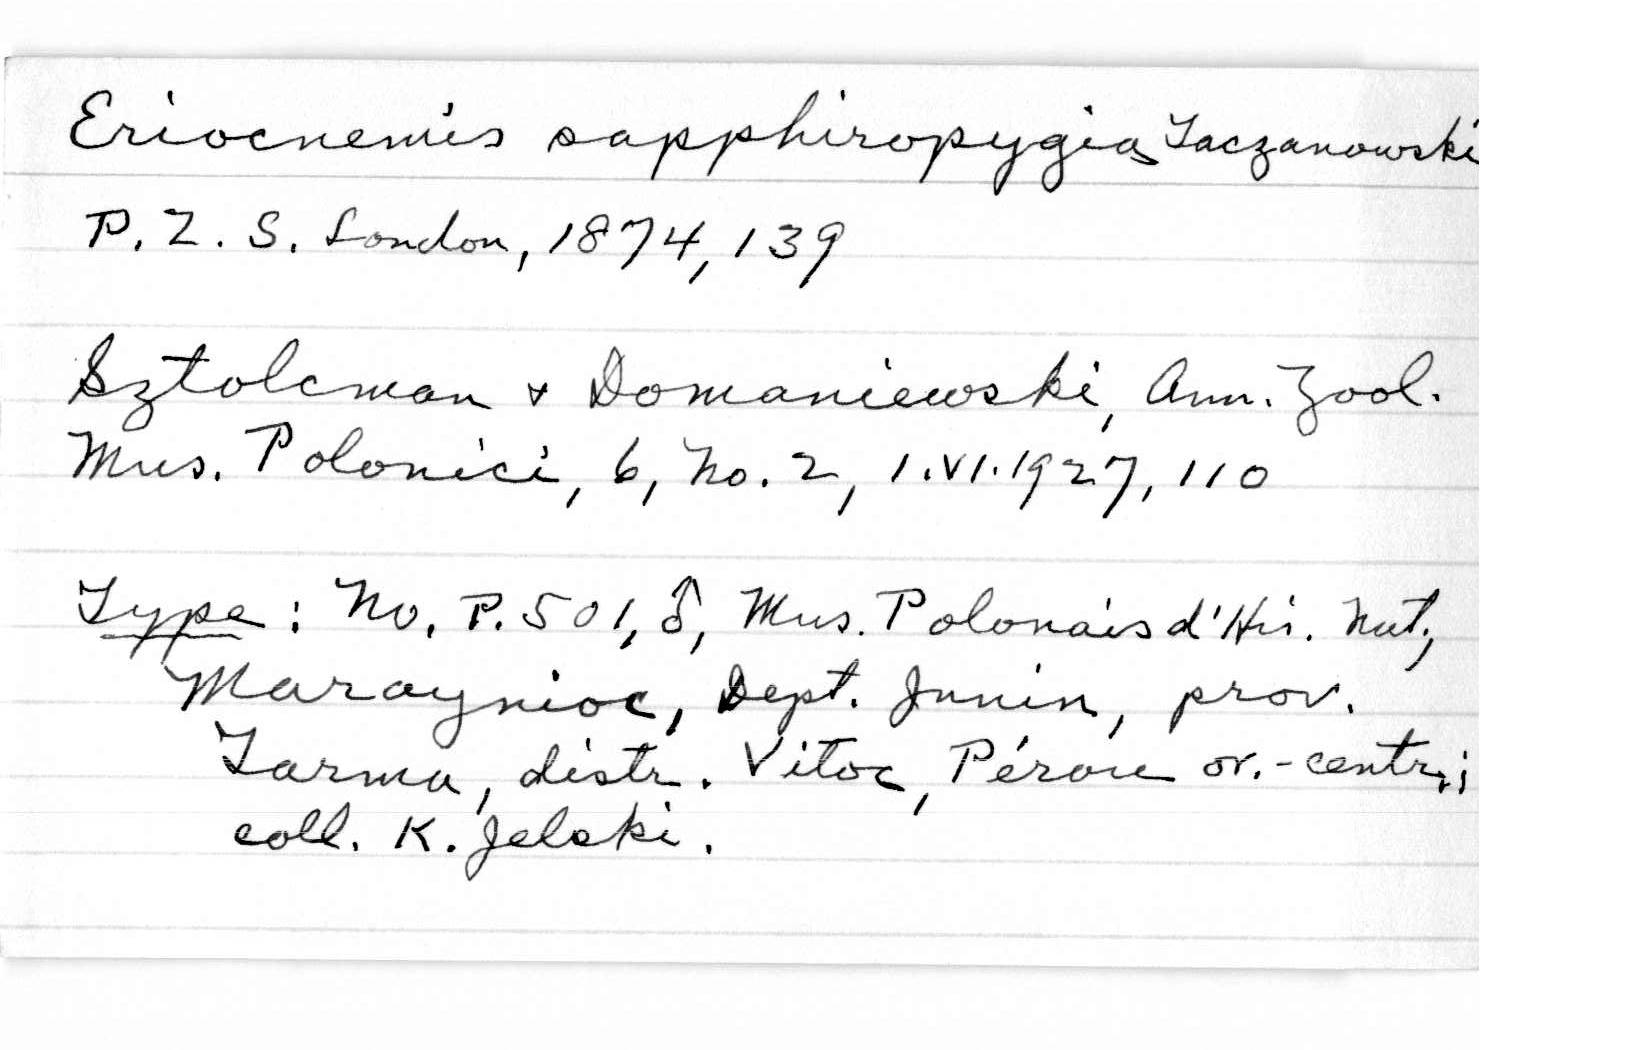 Eriocnemis sapphiropygia Taczanowski
P. Z. S. London, 1874, 139
Sztolcman & Domaniewski, Ann. Zool.
Mus. Polonici, 6, No. 2, 1.VI.1927, 110
Type: No. P. 501, ♂, Mus. Polonais d'His. Nat.;
Maraynioc, Dept. Junin, prov.
Tarma, distr. Vitoc, Pérou or.-centr.;
coll. K. Jelski.